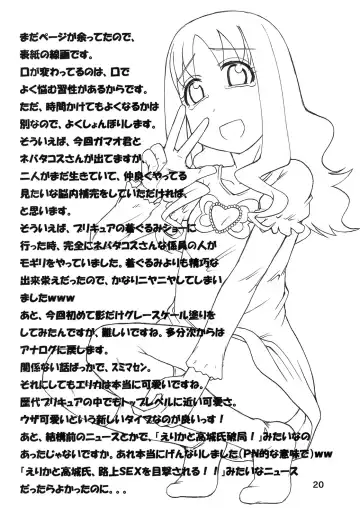 まだページが余ってたので、
表紙の線画です。
口が変わってるのは、口で
よく悩む習性があるからです。
ただ、時間かけてもよくなるかは
別なので、よくしょんぼりします。
そういえば、今回ガマオ君と
ネバタコスさんが出てますが、
二人がまだ生きていて、仲良くやってる
見たいな脳内補完をしていただければ、
と思います。
そういえば、プリキュアの着ぐるみショーに
行った時、完全にネバタコスさんな係員の人が
モギリをやっていました。着ぐるみよりも精巧な
出来栄えだったので、かなりニヤニヤしてしまい
ましたwww
あと、今回初めて影だけグレースケール塗りを
してみたんですが、難しいですね。多分次からは
アナログに戻します。
関係ない話ばっかで、スミマセン。
それにしてもエリカは本当に可愛いですね。
歴代プリキュアの中でもトップレベルに近い可愛さ。
ウザ可愛いという新しいタイプなのが良いっす！
あと、結構前のニュースとかで、「えりかと高城氏破局！」みたいなの
あったじゃないですか。あれ本当にげんなりしました(PN的な意味で)ww
「えりかと高城氏、路上SEXを目撃される！！」みたいなニュース
だったらよかったのに。。。
20